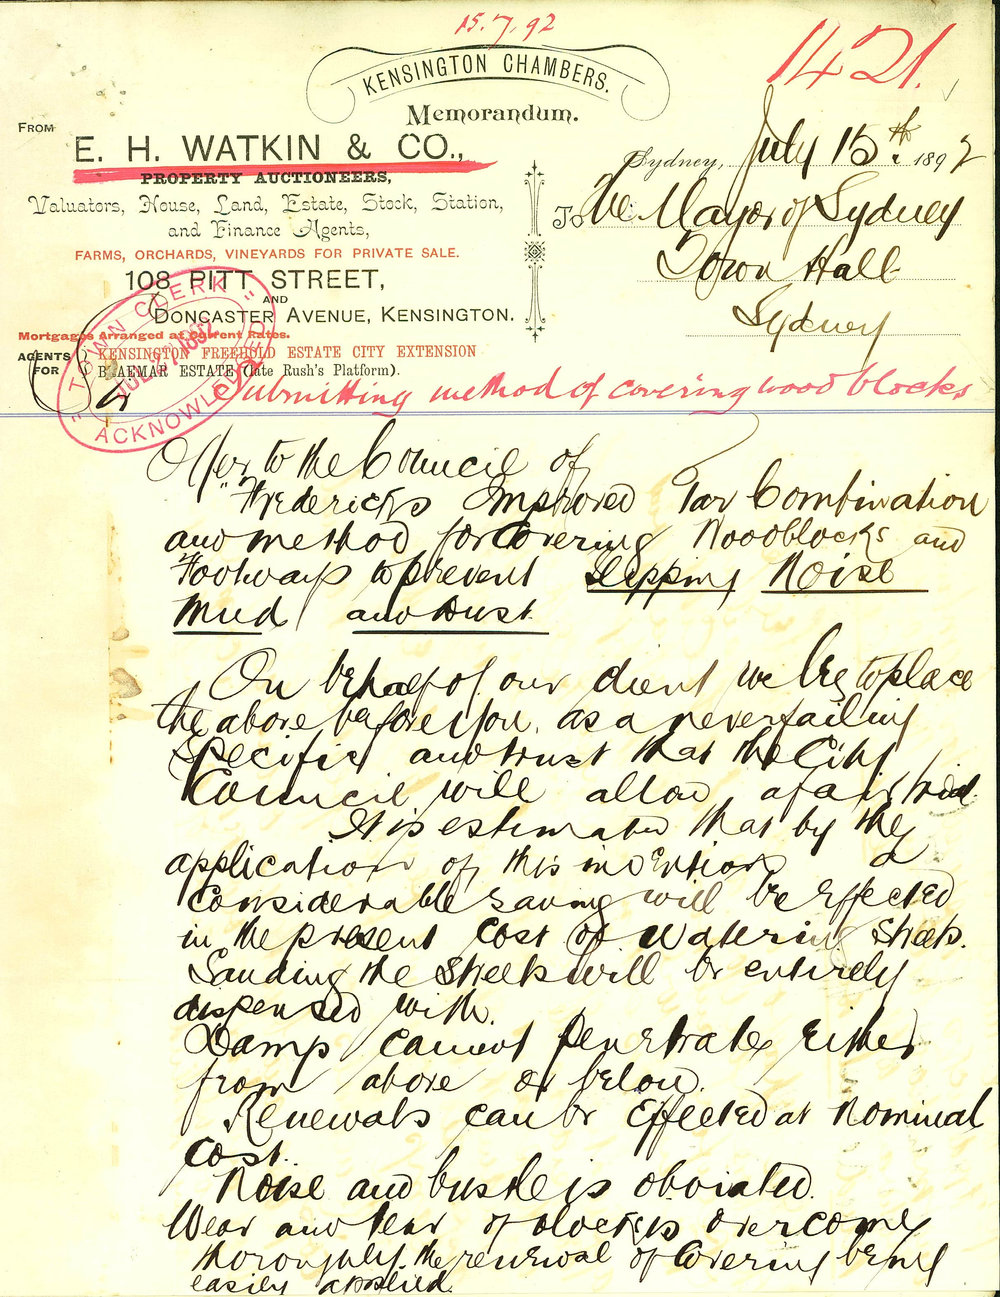 15.7.92
1421.
KENSINGTON CHAMBERS.
Memorandum.
FROM
E. H. WATKIN & CO.,
PROPERTY AUCTIONEERS,
Valuators, House, Land, Estate, Stock, Station,
and Finance Agents,
FARMS, ORCHARDS, VINEYARDS FOR PRIVATE SALE.
108 PITT STREET,
AND
DONCASTER AVENUE, KENSINGTON.
Mortgages Arranged at Current Rates.
AGENTS FOR
KENSINGTON FREEHOLD ESTATE CITY EXTENSION
BRAEMAR ESTATE (late Rush's Platform).
"TOWN CLERK"
JUL 27 1892
ACKNOWLEDGED
Sydney, July 15th. 1892
To The Mayor of Sydney
Town Hall
Sydney
Submitting method of covering wood blocks
Offer to the Council of
"Fredericks Improved Tar Combination
and method for Covering Woodblocks and
Footways to prevent Slipping Noise
Mud and Dust.
On behalf of our client we beg to place
the above before you, as a never failing
Specific and trust that the City
Council will allow a fair trial.
It is estimated that by the
application of this invention a
Considerable saving will be effected
in the present cost of watering Streets.
Sanding the Streets will be entirely
dispensed with.
Damp cannot penetrate either
from above or below.
Renewals can be effected at nominal
Cost.
Noise and bustle is obviated.
Wear and tear of blocks is overcome
thoroughly, the renewal of Covering being
easily applied.